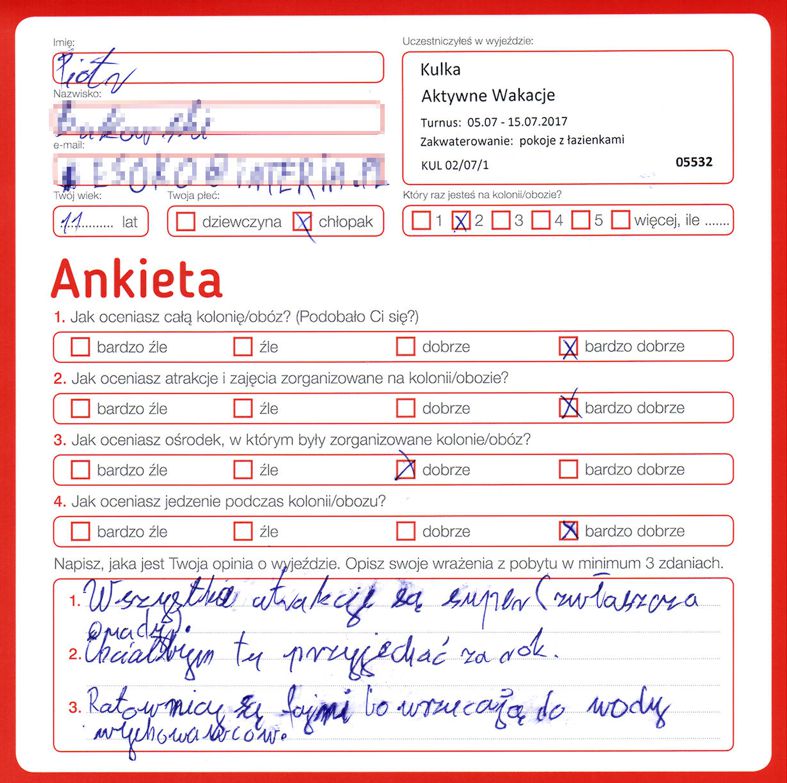 Imię:
Piotr
Nazwisko:
e-mail:
Twój wiek:
11 lat
Twoja płeć:
dziewczyna chłopak
Uczestniczyłeś w wyjeździe:
Kulka
Aktywne Wakacje
Turnus: 05.07 - 15.07.2017
Zakwaterowanie: pokoje z łazienkami
KUL 02/07/1 05532
Który raz jesteś na kolonii/obozie?
1 2 3 4 5 więcej, ile .......
Ankieta
1. Jak oceniasz całą kolonię/obóz? (Podobało Ci się?)
bardzo źle źle dobrze bardzo dobrze
2. Jak oceniasz atrakcje i zajęcia zorganizowane na kolonii/obozie?
bardzo źle źle dobrze bardzo dobrze
3. Jak oceniasz ośrodek, w którym były zorganizowane kolonie/obóz?
bardzo źle źle dobrze bardzo dobrze
4. Jak oceniasz jedzenie podczas kolonii/obozu?
bardzo źle źle dobrze bardzo dobrze
Napisz, jaka jest Twoja opinia o wyjeździe. Opisz swoje wrażenia z pobytu w minimum 3 zdaniach.
1. Wszystkie atrakcje są super (zwłaszcza
2. Chciałbym tu przyjechać za rok.
3. Ratownicy są fajni bo wrzucają do wody
wychowawców.